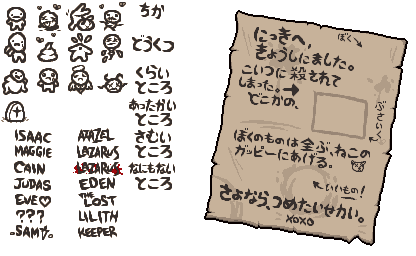 ちか
どうくつ
くらい
ところ
あったかい
ところ
さむい
ところ
なにもない
ところ
ISAAC
MAGGIE
CAIN
JUDAS
EVE
???
SAMSON
AZAZEL
LAZARUS
LAZARUS
EDEN
THE
LOST
LILITH
KEEPER
にっきへ、
きょうしにました。
こいつに殺されて
しまった。→
どこかの、
ぼく
ぼくのものは全ぶ、ねこの
ガッピーにあげる。
←いいもの!
さよなら、つめたいせかい。
xoxo